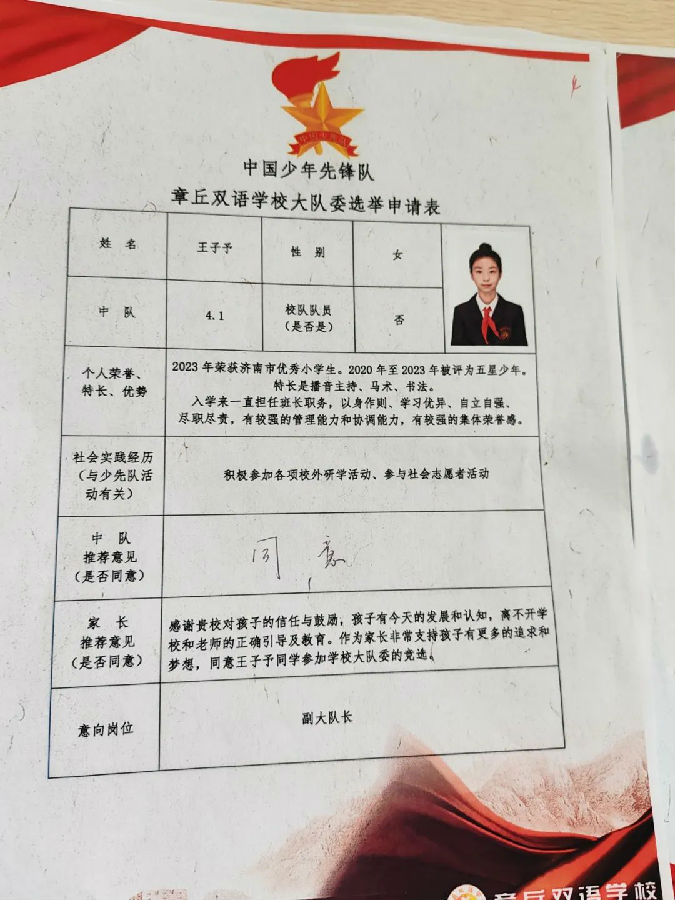 中国少年先锋队
中国少年先锋队
章丘双语学校大队委选举申请表
姓 名
王子予
性 别
女
中 队
4.1
校队队员
（是否是）
否
个人荣誉、
特长、优势
2023 年荣获济南市优秀小学生。2020 年至 2023 年被评为五星少年。
特长是播音主持、马术、书法。
入学来一直担任班长职务，以身作则、学习优异、自立自强、
尽职尽责，有较强的管理能力和协调能力，有较强的集体荣誉感。
社会实践经历
（与少先队活
动有关）
积极参加各项校外研学活动、参与社会志愿者活动
中 队
推荐意见
（是否同意）
同 意
家 长
推荐意见
（是否同意）
感谢贵校对孩子的信任与鼓励，孩子有今天的发展和认知，离不开学
校和老师的正确引导及教育。作为家长非常支持孩子有更多的追求和
梦想，同意王子予同学参加学校大队委的竞选。
意向岗位
副大队长
章丘双语学校